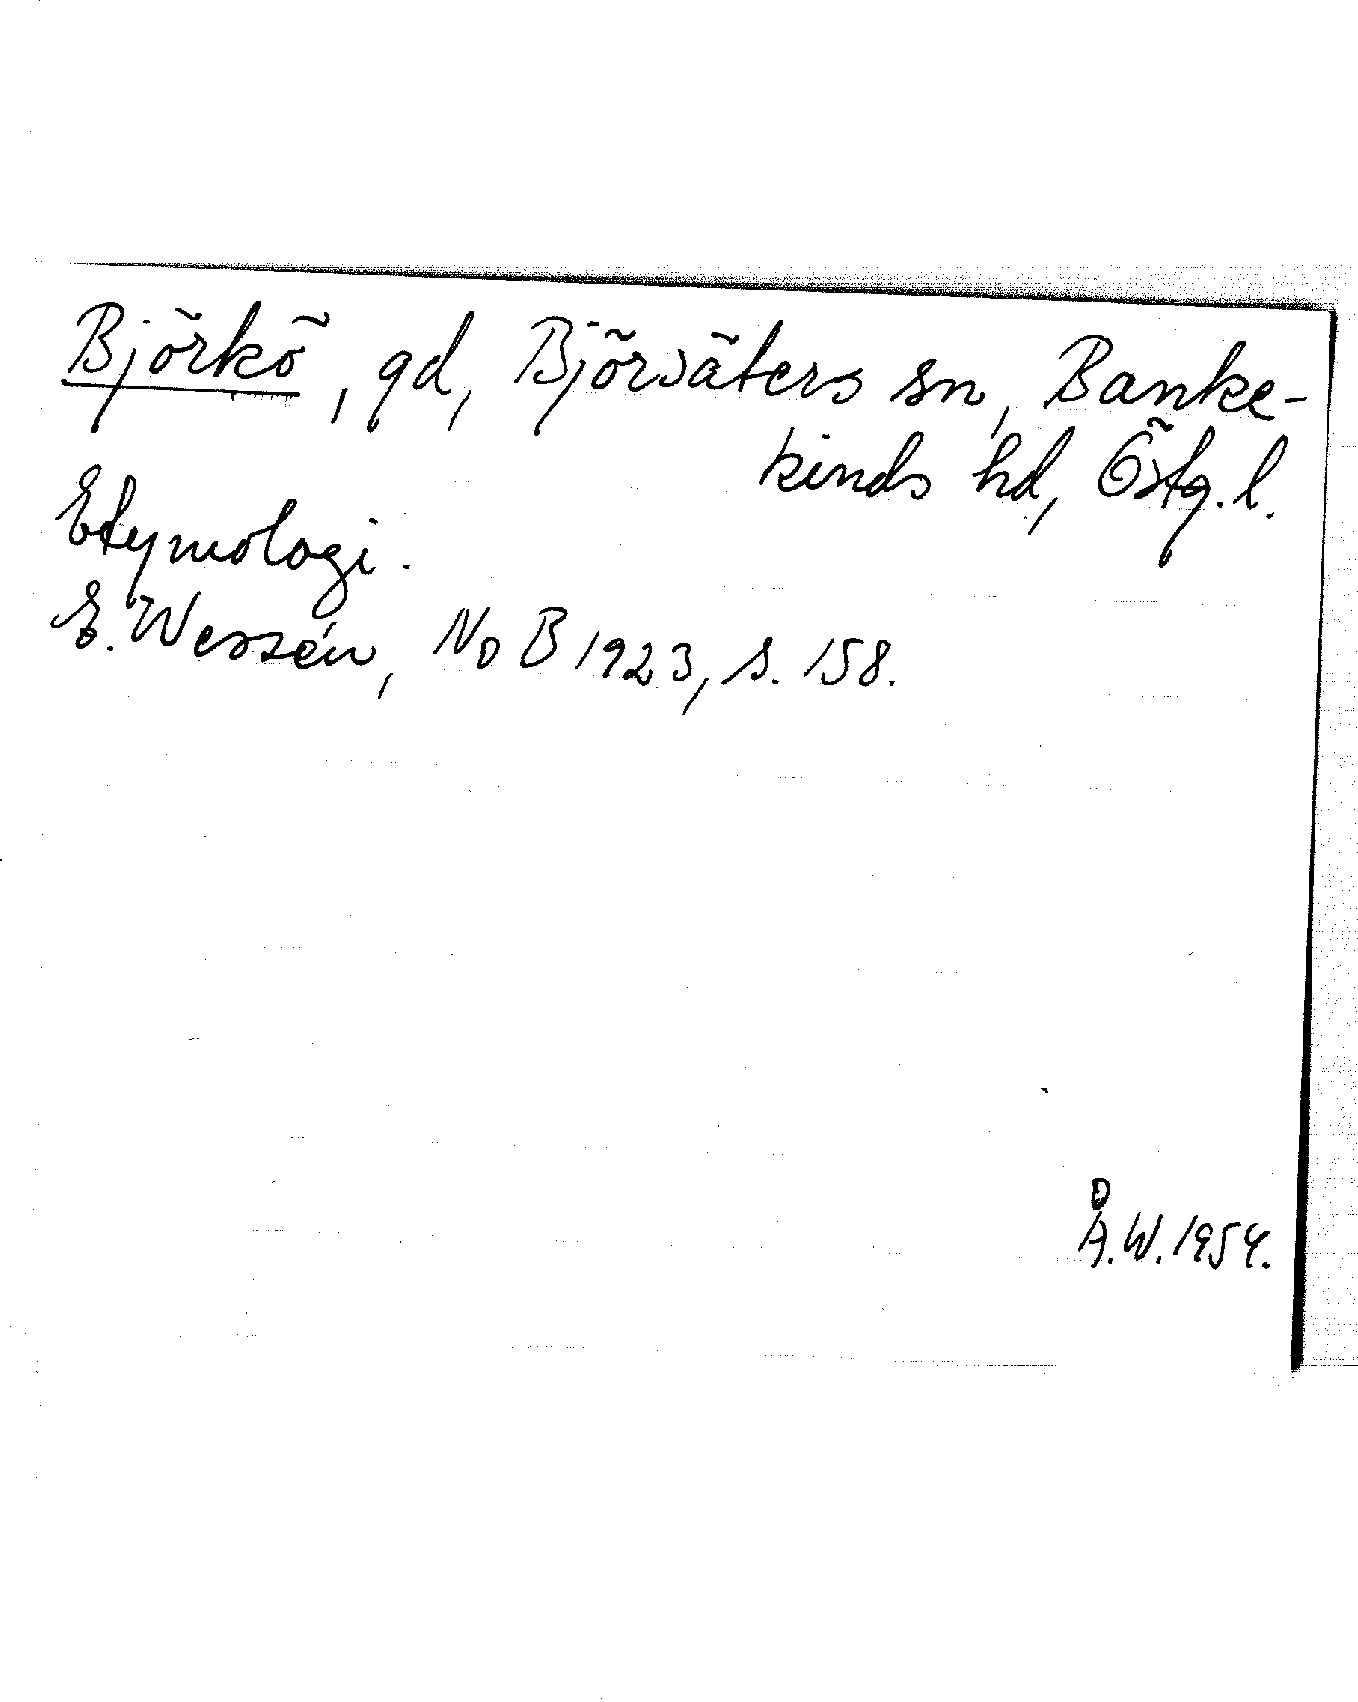 Björkö, gd, Björsäters sn, Banke-
kinds hd, Östg.l.
Etymologi.
E. Wessén, NoB 1923, s. 158.
Å.W. 1954.